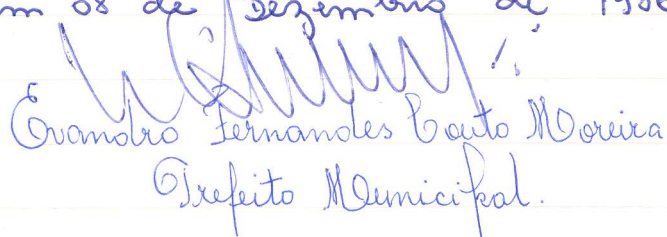 m 08 de Dezembro de 198
Evandro Fernandes Couto Moreira
Prefeito Municipal.